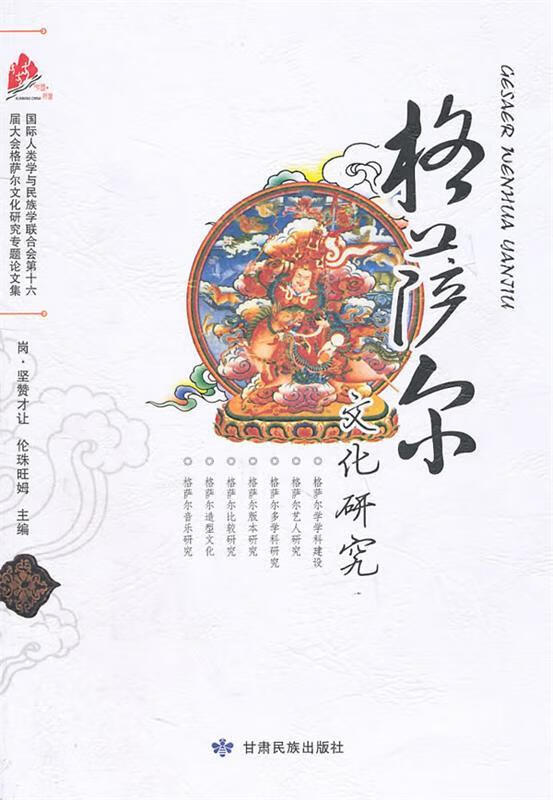 格萨尔
文化研究
GESAER WENHUA YANJIU
国际人类学与民族学联合会第十六
届大会格萨尔文化研究专题论文集
岗·坚赞才让 伦珠旺姆 主编
格萨尔学学科建设
格萨尔艺人研究
格萨尔多学科研究
格萨尔版本研究
格萨尔比较研究
格萨尔造型文化
格萨尔音乐研究
甘肃民族出版社